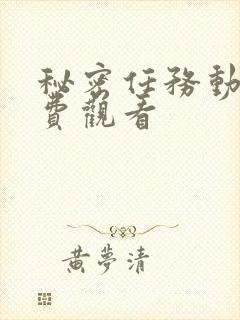 秘密任務動
費觀看
黃夢清